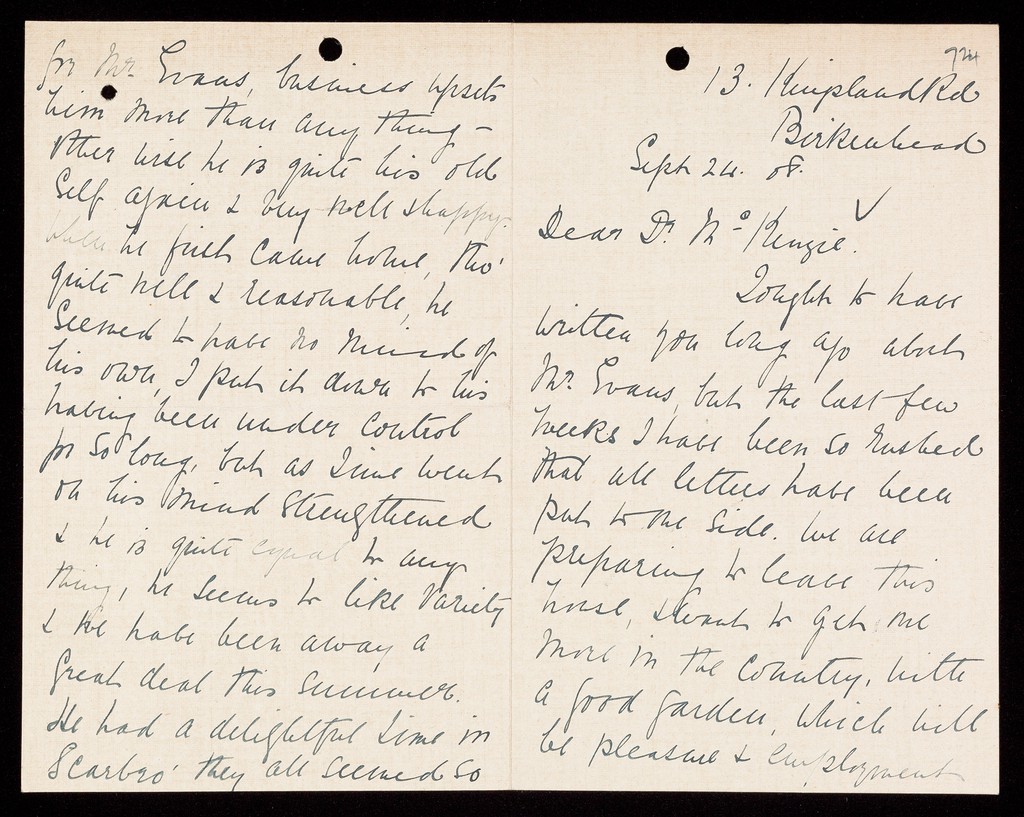 724
13. Kingsland Rd
Birkenhead
Sept 24. 08.
Dear Dr. McKenzie.
I ought to have
written you long ago about
Mr. Evans, but the last few
weeks I have been so rushed
that all letters have been
put to one side. We are
preparing to leave this
house, & want to get one
more in the country, with
a good garden, which will
be pleasure & employment
for Mr. Evans, business upsets
him more than any thing –
Other wise he is quite his old
self again & very well & happy.
When he first came home, tho'
quite well & reasonable, he
seemed to have no mind of
his own, I put it down to his
having been under control
for so long, but as time went
on his mind strengthened
& he is quite equal to any
thing, he seems to like variety
& we have been away a
great deal this summer.
He had a delightful time in
Scarbro' they all seemed so